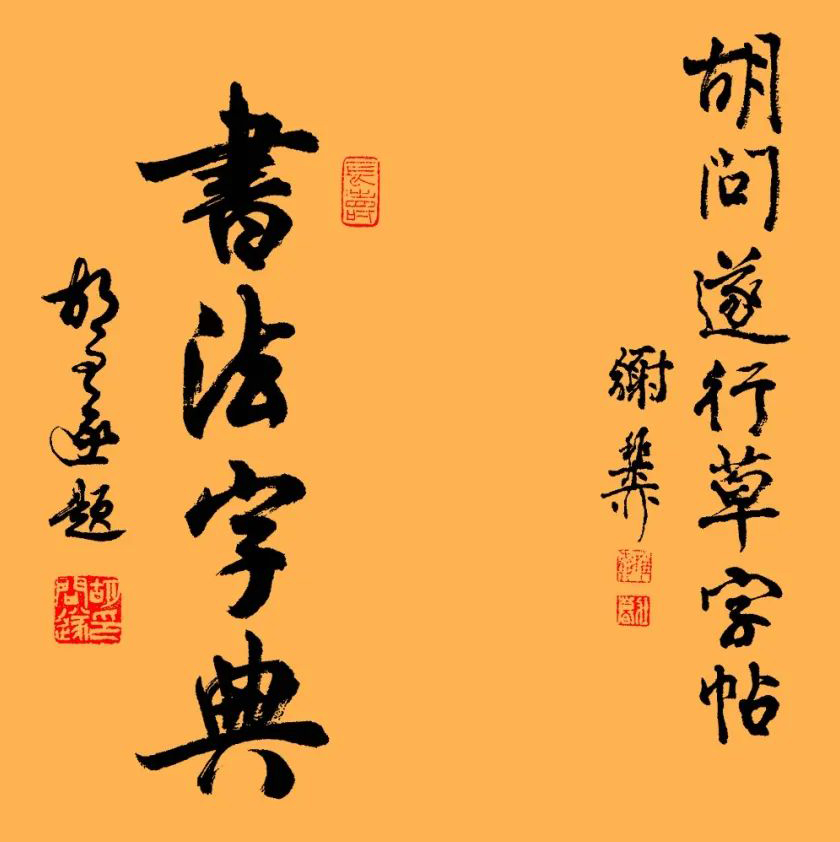 胡问遂行草字帖
長壽
書法字典
胡问遂题
胡印問遂